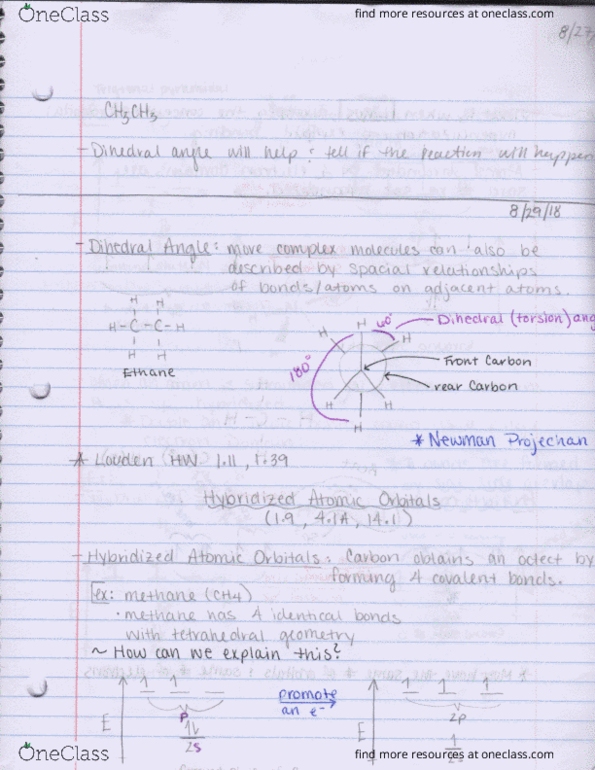 OneClass
find more resources at oneclass.com
8/27
CH3CH3
- Dihedral angle will help: tell if the reaction will happen
8/29/18
- Dihedral Angle: more complex molecules can also be
described by spacial relationships
of bonds/atoms on adjacent atoms.
H H
H-C-C-H
H H
Ethane
H H 60° H
Dihedral (torsion) ang
180°
Front Carbon
rear Carbon
H H
H
* Newman Projechan
* Louden HW 1.11, 1.39
Hybridized Atomic Orbitals
(1.9, 4.1A, 14.1)
- Hybridized Atomic Orbitals: Carbon obtains an octect by
forming 4 covalent bonds.
ex: methane (CH4)
· methane has 4 identical bonds
with tetrahedral geometry
~ How can we explain this?
1 1
promote
an e-
1 1 1
P
2p
E
2s
E
1
OneClass
find more resources at oneclass.com